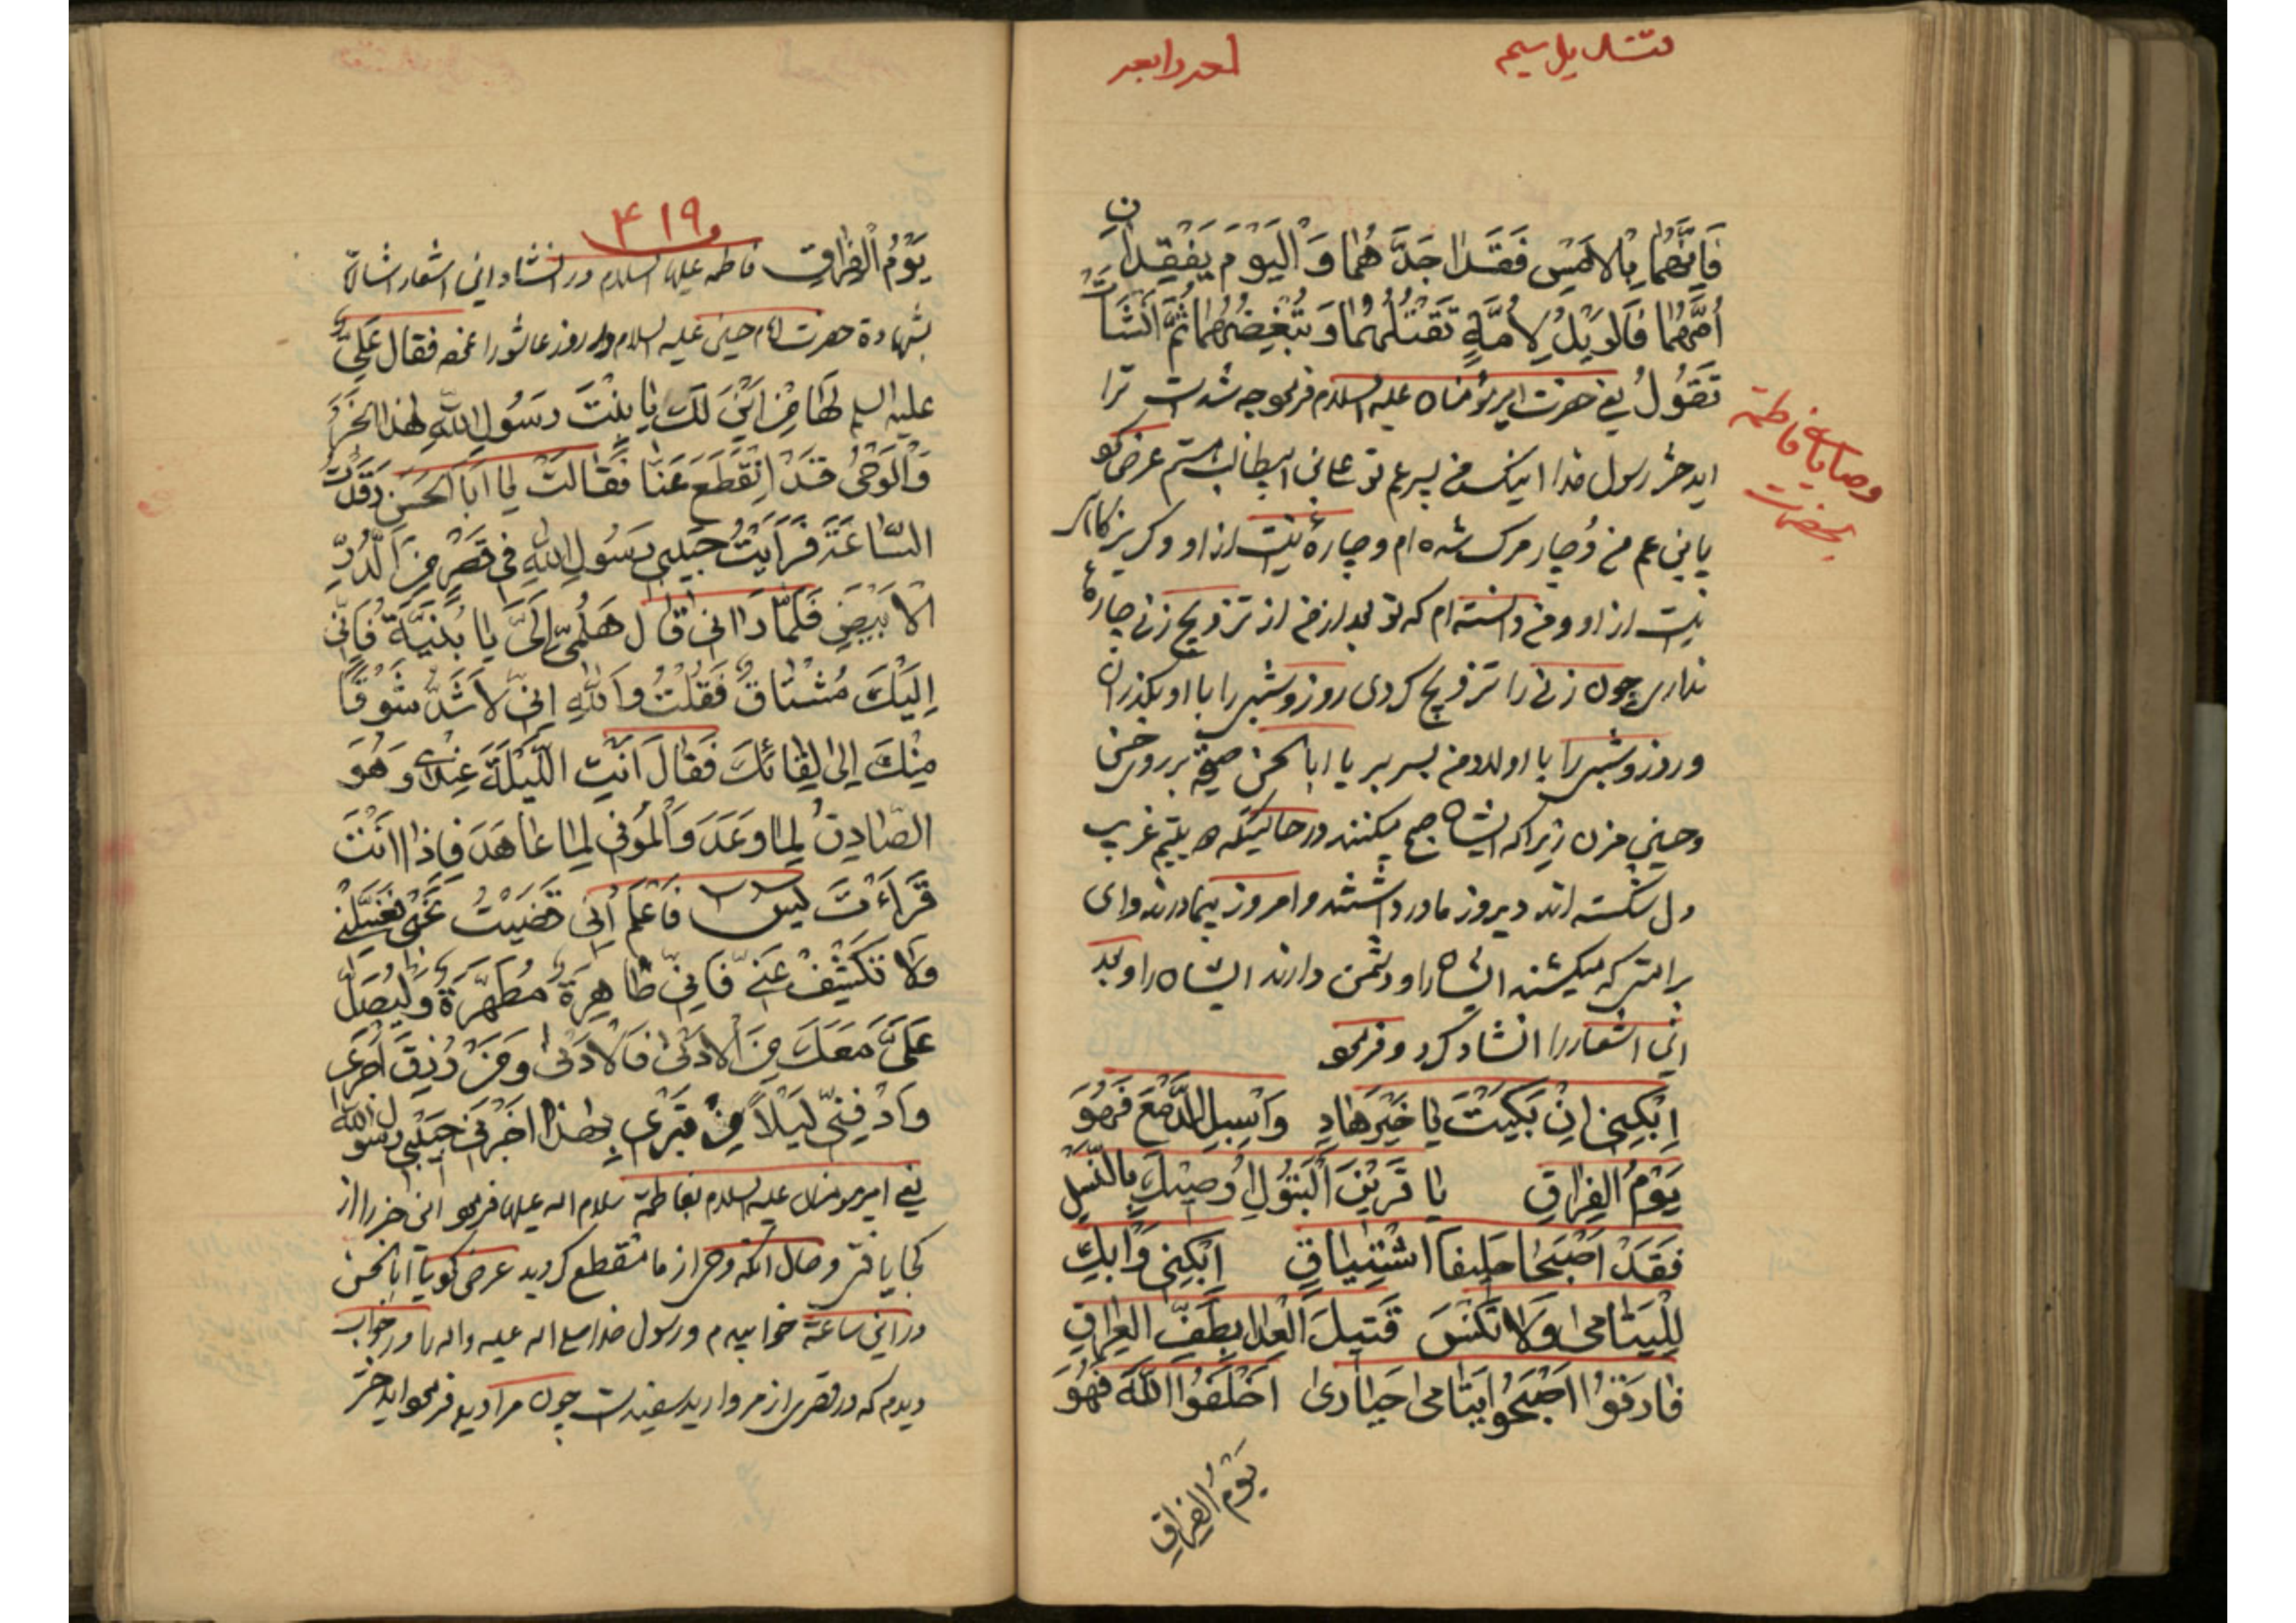 فَاِنَّهُمَا بِالْاَمْسِ فَقَدَا جَدَّهُمَا وَالْیَوْمَ یَفْقِدَانِ
اُمَّهُمَا فَالْوَیْلُ لِاُمَّةٍ تَقْتُلُهُمَا وَ تُبْغِضُهُمَا ثُمَّ اَنْشَاَتْ
تَقُولُ یعنی حضرت امیر مؤمنان علیه السلام فرمود چه شدت ترا
ای دختر رسول خدا اینک من پسر عم تو علی بن ابیطالب هستم عرض کرد
یا بن عم من دُچار مرک شده ام و چارهٔ نیست از او و کریزکاهی
نیست از او و من دانسته ام که تو بعد از من از تزویج زنی چارهٔ
نداری چون زنی را تزویج کردی روز و شبی را با او بکذران
و روز و شبی را با اولاد من بسر ببر یا ابا الحسن صیحه بر روی حسن
و حسین مزن زیرا که ایشان صبح میکنند در حالتیکه یتیم غریب
دل شکسته اند دیروز مادر داشتند و امروز بیمادرند وای
بر امتی که میکشند ایشان را و دشمن دارند ایشان را و بعد
این اشعار را انشاد کرد و فرمود
اِبْکِنِی اِنْ بَکَیْتَ یَا خَیْرَ هَادٍ وَاَسْبِلِ الدَّمْعَ فَهُوَ
یَوْمُ الْفِرَاقِ یَا قَرِینَ الْبَتُولِ اُوصِیْکَ بِالنَّسْلِ
فَقَدْ اَصْبَحَا حَلِیفَا اشْتِیَاقٍ اِبْکِنِی وَابْکِ
لِلْیَتَامٰی وَلَا تَنْسَ قَتِیلَ الْعِدَا بِطَفِّ الْعِرَاقِ
فَارَقُوا اَصْبَحُوا یَتَامٰی حَیَارٰی اَخْلَفُوا اللّٰهَ فَهُوَ
یَوْمُ الْفِرَاقِ
وصایای فاطمة
بحضرت
۴۱۹
یَوْمُ الْفِرَاقِ فاطمه علیها السلام در انشاد این اشعار اشارة
بشهادة حضرت امام حسین علیه السلام در روز عاشورا فقال عَلِیٌّ
علیه السلم لَهَا مِنْ اَیْنَ لَکِ یَا بِنْتَ رَسُولِ اللّٰهِ هٰذَا الْخَبَرُ
وَالْوَحْیُ قَدْ اِنْقَطَعَ عَنَّا فَقَالَتْ یَا اَبَا الْحَسَنِ رَقَدْتُ
السَّاعَةَ فَرَاَیْتُ حَبِیبِی رَسُولَ اللّٰهِ فِی قَصْرٍ مِنَ الدُّرِّ
الْاَبْیَضِ فَلَمَّا رَاٰنِی قَالَ هَلُمِّی اِلَیَّ یَا بُنَیَّةُ فَاِنِّی
اِلَیْکِ مُشْتَاقٌ فَقُلْتُ وَاللّٰهِ اِنِّی لَاَشَدُّ شَوْقًا
مِنْکَ اِلٰی لِقَائِکَ فَقَالَ اَنْتِ اللَّیْلَةَ عِنْدِی وَ هُوَ
الصَّادِقُ لِمَا وَعَدَ وَالْمُوفِی لِمَا عَاهَدَ فَاِذَا اَنْتَ
قَرَاْتَ یس فَاعْلَمْ اَنِّی قَضَیْتُ نَحْبِی فَغَسِّلْنِی
وَلَا تَکْشِفْ عَنِّی فَاِنِّی طَاهِرَةٌ مُطَهَّرَةٌ وَلْیُصَلِّ
عَلَیَّ مَعَکَ مِنَ الْاَدْنٰی فَالْاَدْنٰی وَ مَنْ رُزِقَ اَجْرِی
وَادْفِنِّی لَیْلاً فِی قَبْرِی بِهٰذَا اَخْبَرَنِی حَبِیبِی رسول الله
یعنی امیر مؤمنان علیه السلام بفاطمة سلام اله علیها فرمود این خبر را از
کجا یافتی و حال انکه وحی از ما منقطع کردید عرض کرد یا ابا الحسن
در این ساعة خوابیدم و رسول خدا صلی اله علیه واله را در خواب
دیدم که در قصری از مروارید سفید است چون مرا دید فرمود ای دختر